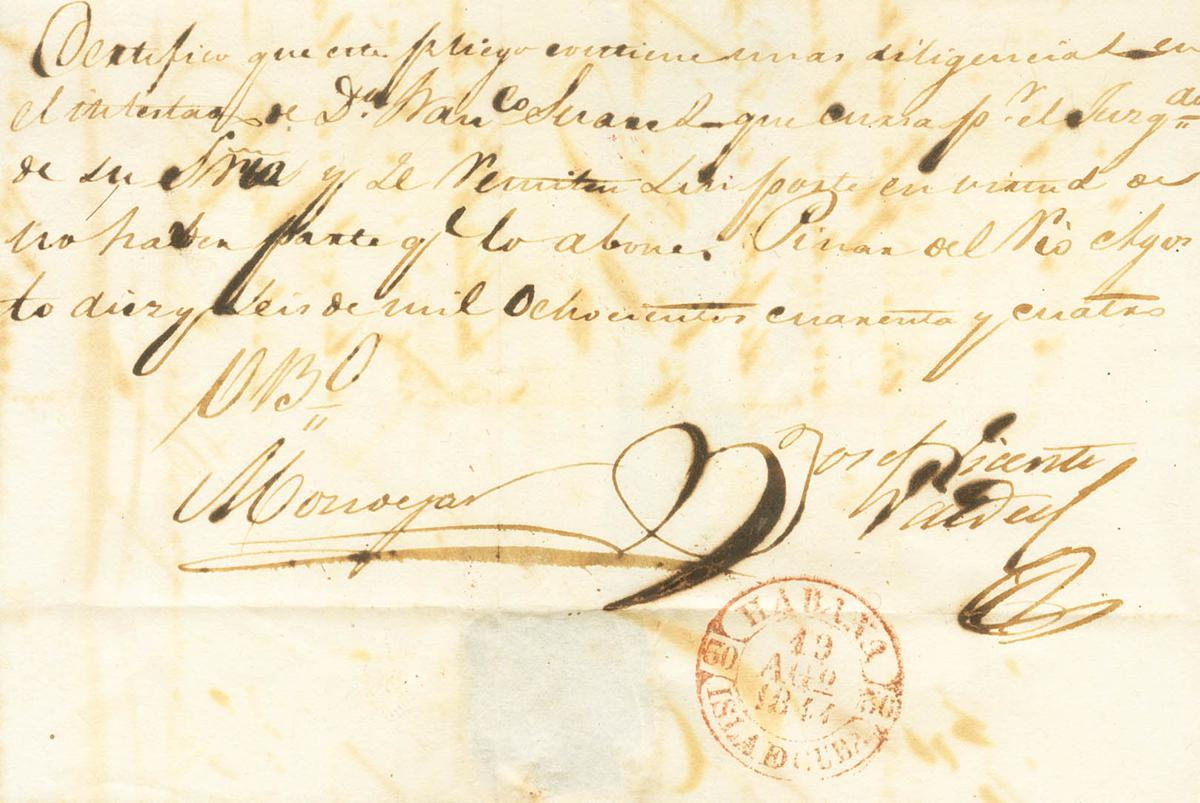 Certifico que este pliego contiene unas diligencias en
el intestado de Dn. Franco Suares que cursa pr. el Juzgdo
de su Sria y se remiten sin porte en virtud de
no haber parte qe lo abone. Pinar del Rio Agos
to diez y seis de mil ochocientos cuarenta y cuatro
VBo
Jose Vicente
Valdes
HABANA
50 19 50
AGO
1844
ISLA DE CUBA